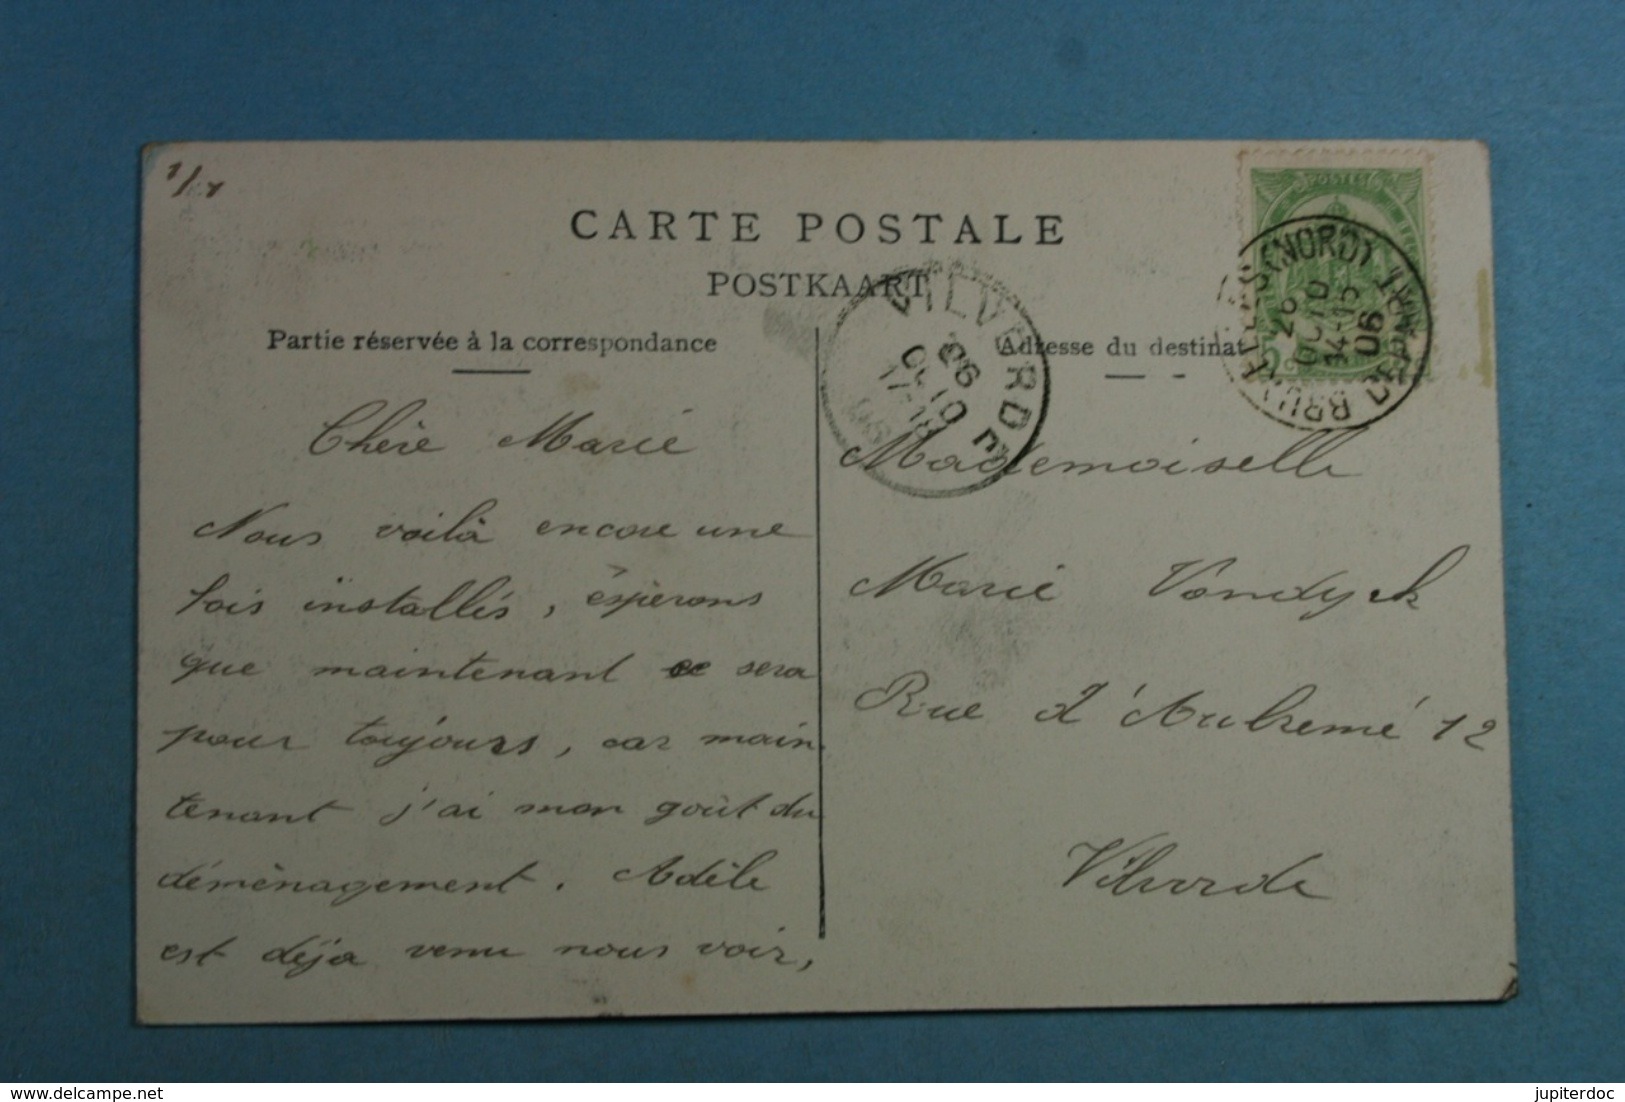 1/1
CARTE POSTALE
POSTKAART
Partie réservée à la correspondance
Adresse du destinat
POSTES
BRUXELLES (NORD) 1 DÉPART
26
OCTO
14-15
06
VILVORDE
26
OCTO
17-18
06
Chère Marie
Nous voilà encore une
fois installés, éspèrons
que maintenant ce sera
pour toujours, car main
tenant j'ai mon goût du
déménagement. Adèle
est déja venu nous voir,
Mademoiselle
Marie Vandyck
Rue d'Aubremé 12
Vilvorde
http://www.delcampe.net
jupiterdoc